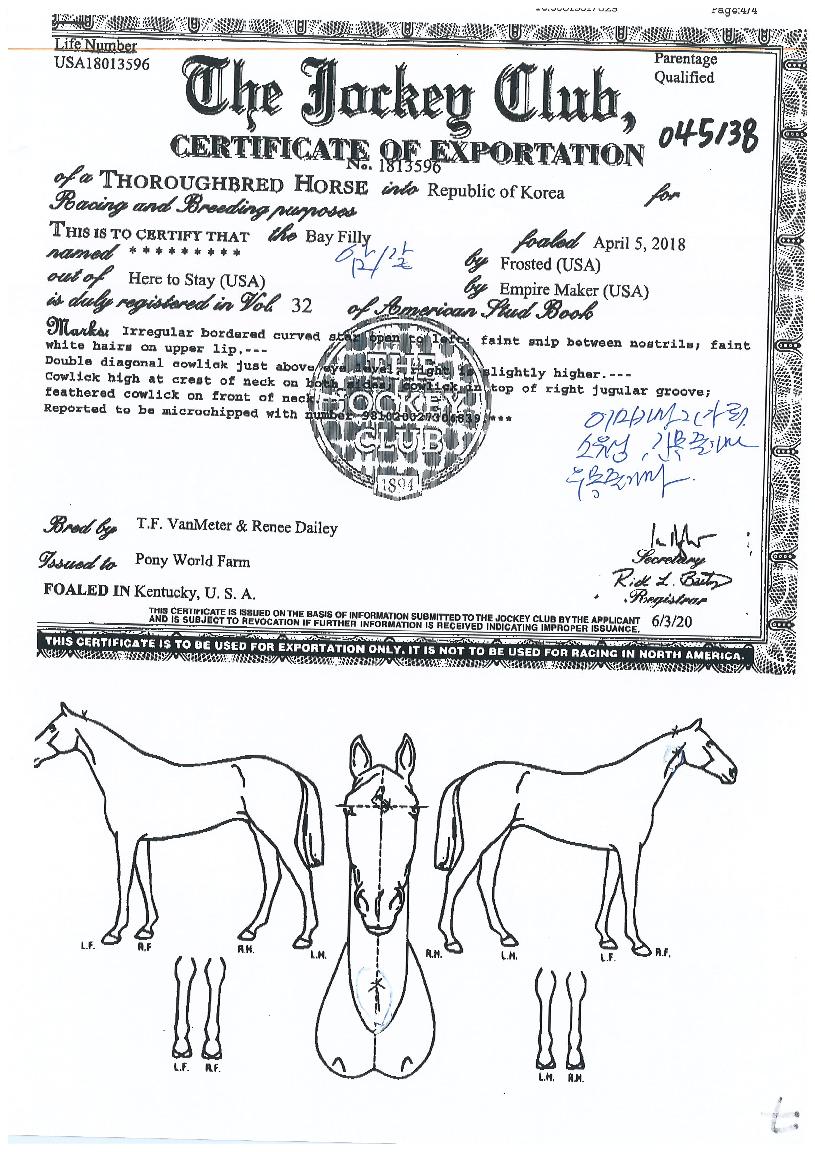 Page:4/4
Life Number
USA18013596
Parentage
Qualified
The Jockey Club,
045138
CERTIFICATE OF EXPORTATION
No. 1813596
of a THOROUGHBRED HORSE into Republic of Korea for
Racing and Breeding purposes
THIS IS TO CERTIFY THAT the Bay Filly foaled April 5, 2018
named * * * * * * * * * by Frosted (USA)
out of Here to Stay (USA) by Empire Maker (USA)
is duly registered in Vol. 32 of American Stud Book
Marks: Irregular bordered curved star open to left; faint snip between nostrils; faint
white hairs on upper lip,---
Double diagonal cowlick just above eye level, right is slightly higher.---
Cowlick high at crest of neck on both sides; cowlick in top of right jugular groove;
feathered cowlick on front of neck.
Reported to be microchipped with number 981020027304839.***
THE
JOCKEY
CLUB
1894
Bred by T.F. VanMeter & Renee Dailey
Issued to Pony World Farm
Secretary
Registrar
FOALED IN Kentucky, U. S. A.
THIS CERTIFICATE IS ISSUED ON THE BASIS OF INFORMATION SUBMITTED TO THE JOCKEY CLUB BY THE APPLICANT
AND IS SUBJECT TO REVOCATION IF FURTHER INFORMATION IS RECEIVED INDICATING IMPROPER ISSUANCE. 6/3/20
THIS CERTIFICATE IS TO BE USED FOR EXPORTATION ONLY. IT IS NOT TO BE USED FOR RACING IN NORTH AMERICA.
L.F. R.F R.H. L.H. R.H. L.H. L.F. R.F.
L.F. R.F. L.H. R.H.